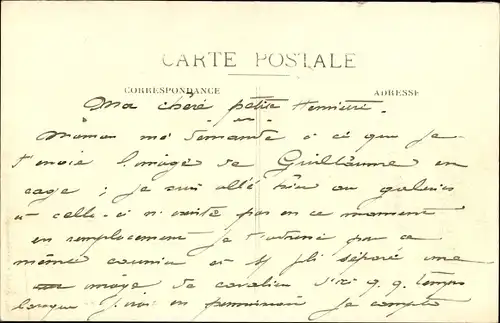 CARTE POSTALE
CORRESPONDANCE
ADRESSE
Ma chère petite
Maman me demande à ce que je
t'envoie l'image de Guillaume en
cage ; je suis allé hier au galeries
et celle-ci n'existe pas en ce moment
en remplacement je t'enverrai par ce
même courrier et pli séparé une
image de cavalier d'ici q.q. temps
lorsque j'irai en permission je compte